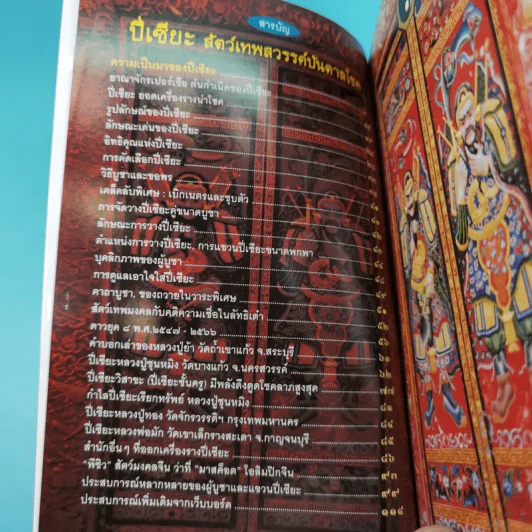 สารบัญ
ปี่เซียะ สัตว์เทพสวรรค์บันดาลโชค
ความเป็นมาของปี่เซียะ
อาณาจักรเปอร์เซีย ต้นกำเนิดของปี่เซียะ
ปี่เซียะ ยอดเครื่องรางนำโชค
รูปลักษณ์ของปี่เซียะ
ลักษณะเด่นของปี่เซียะ
อิทธิคุณแห่งปี่เซียะ
การคัดเลือกปี่เซียะ
วิธีบูชาและขอพร
เคล็ดลับพิเศษ : เบิกเนตรและชุบตัว
การจัดวางปี่เซียะคู่ขนาดบูชา
ลักษณะการวางปี่เซียะ
ตำแหน่งการวางปี่เซียะ, การแขวนปี่เซียะขนาดพกพา
บุคลิกภาพของผู้บูชา
การดูแลเอาใจใส่ปี่เซียะ
คาถาบูชา, ของถวายในวาระพิเศษ ๔๙
สัตว์เทพมงคลกับคติความเชื่อในลัทธิเต๋า ๕๑
ดาวยุค ๘ พ.ศ.๒๕๔๗ - ๒๕๖๖
คำบอกเล่าของหลวงปู่ย้า วัดถ้ำเขาแก้ว จ.สระบุรี
ปี่เซียะหลวงปู่ชุนหมิง วัดบางแก้ว จ.นครสวรรค์
ปี่เซียะวิสาขะ (ปี่เซียะชั้นครู) มีพลังดึงดูดโชคลาภสูงสุด ๗๗
กำไลปี่เซียะเรียกทรัพย์ หลวงปู่ชุนหมิง
ปี่เซียะหลวงปู่ทอง วัดจักรวรรดิฯ กรุงเทพมหานคร ๘๔
ปี่เซียะหลวงพ่อมัก วัดเขาเล็กรางสะเดา จ.กาญจนบุรี ๘๕
สำนักอื่นๆ ที่ออกเครื่องรางปี่เซียะ ๘๖
"พิซิว" สัตว์มงคลจีน ว่าที่ "มาสค็อต" โอลิมปิกจีน ๙๓
ประสบการณ์หลากหลายของผู้บูชาและแขวนปี่เซียะ ๙๙
ประสบการณ์เพิ่มเติมจากเว็บบอร์ด ๑๑๔